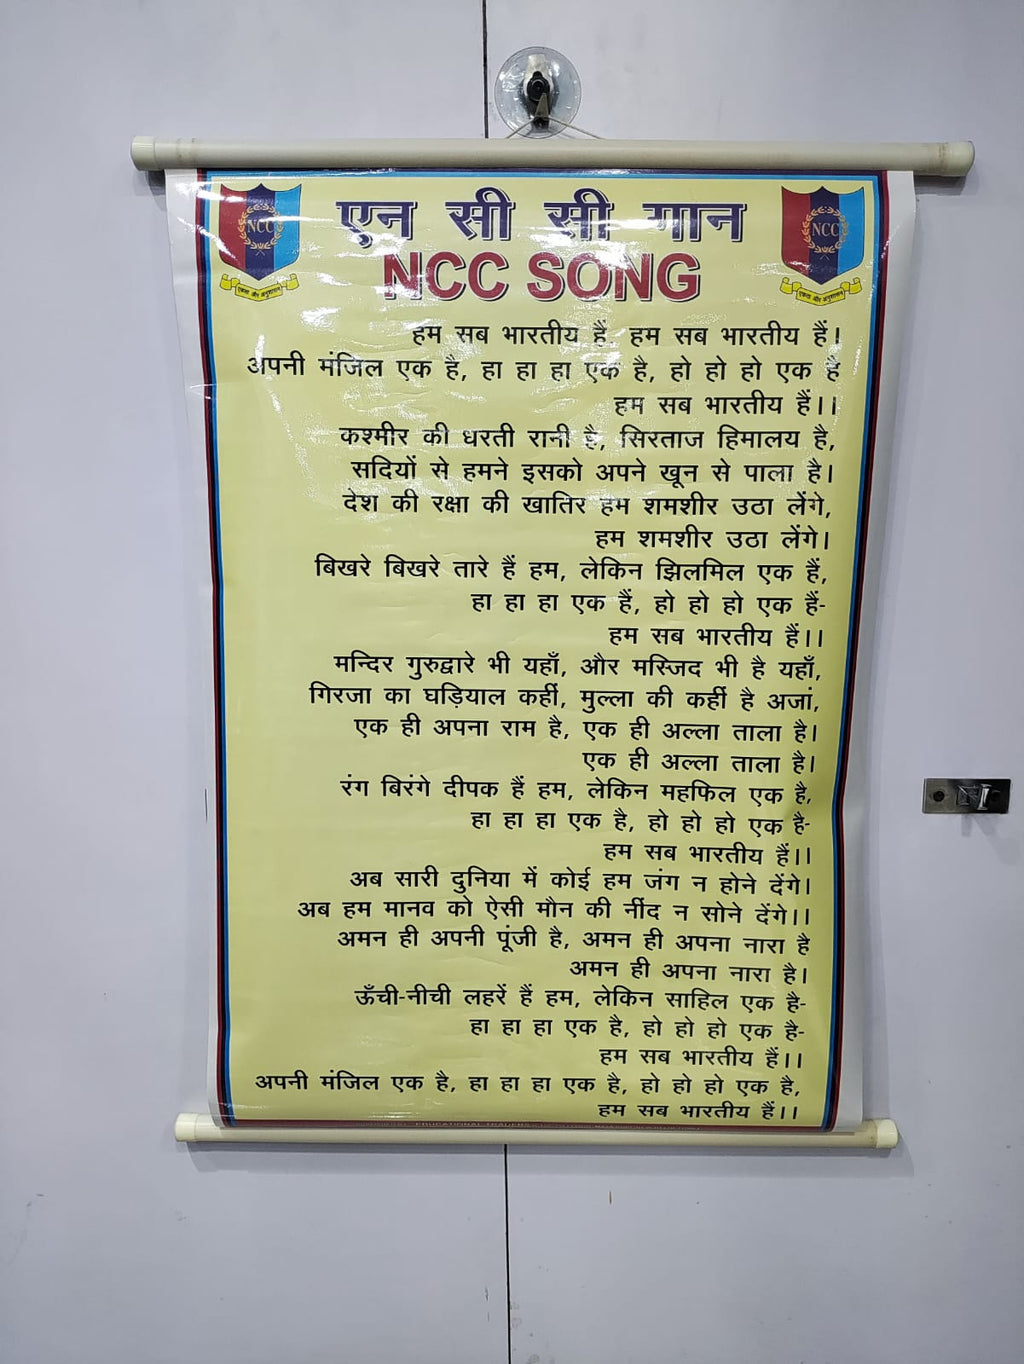 एन सी सी गान
NCC SONG
NCC
एकता और अनुशासन
NCC
एकता और अनुशासन
हम सब भारतीय हैं, हम सब भारतीय हैं।
अपनी मंजिल एक है, हा हा हा एक है, हो हो हो एक है
हम सब भारतीय हैं।।
कश्मीर की धरती रानी है, सिरताज हिमालय है,
सदियों से हमने इसको अपने खून से पाला है।
देश की रक्षा की खातिर हम शमशीर उठा लेंगे,
हम शमशीर उठा लेंगे।
बिखरे बिखरे तारे हैं हम, लेकिन झिलमिल एक हैं,
हा हा हा एक हैं, हो हो हो एक हैं-
हम सब भारतीय हैं।।
मन्दिर गुरुद्वारे भी यहाँ, और मस्जिद भी है यहाँ,
गिरजा का घड़ियाल कहीं, मुल्ला की कहीं है अजां,
एक ही अपना राम है, एक ही अल्ला ताला है।
एक ही अल्ला ताला है।
रंग बिरंगे दीपक हैं हम, लेकिन महफिल एक है,
हा हा हा एक है, हो हो हो एक है-
हम सब भारतीय हैं।।
अब सारी दुनिया में कोई हम जंग न होने देंगे।
अब हम मानव को ऐसी मौन की नींद न सोने देंगे।।
अमन ही अपनी पूंजी है, अमन ही अपना नारा है
अमन ही अपना नारा है।
ऊँची-नीची लहरें हैं हम, लेकिन साहिल एक है-
हा हा हा एक है, हो हो हो एक है-
हम सब भारतीय हैं।।
अपनी मंजिल एक है, हा हा हा एक है, हो हो हो एक है,
हम सब भारतीय हैं।।
EDUCATIONAL TRADERS